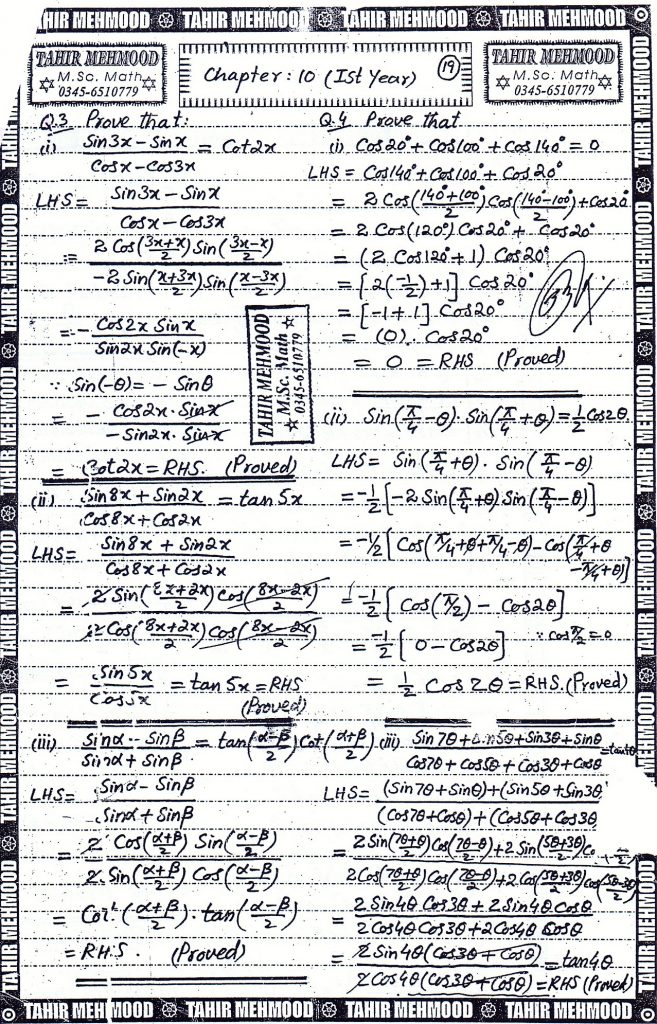 TAHIR MEHMOOD TAHIR MEHMOOD TAHIR MEHMOOD TAHIR MEHMOOD
TAHIR MEHMOOD
M.Sc. Math
0345-6510779
Chapter : 10 (Ist Year)
19
TAHIR MEHMOOD
M.Sc. Math
0345-6510779
Q.3 Prove that:
(i) (Sin3x - Sinx)/(Cosx - Cos3x) = Cot2x
LHS = (Sin3x - Sinx)/(Cosx - Cos3x)
= (2 Cos((3x+x)/2) Sin((3x-x)/2))/(-2 Sin((x+3x)/2) Sin((x-3x)/2))
= - (Cos2x Sinx)/(Sin2x Sin(-x))
∵ Sin(-θ) = - Sinθ
= - (Cos2x . Sinx)/(-Sin2x . Sinx)
= Cot2x = RHS. (Proved)
(ii) (Sin8x + Sin2x)/(Cos8x + Cos2x) = tan5x
LHS = (Sin8x + Sin2x)/(Cos8x + Cos2x)
= (2 Sin((8x+2x)/2) Cos((8x-2x)/2))/(2 Cos((8x+2x)/2) Cos((8x-2x)/2))
= Sin5x/Cos5x = tan5x = RHS
(Proved)
(iii) (Sinα - Sinβ)/(Sinα + Sinβ) = tan((α-β)/2) Cot((α+β)/2)
LHS = (Sinα - Sinβ)/(Sinα + Sinβ)
= (2 Cos((α+β)/2) Sin((α-β)/2))/(2 Sin((α+β)/2) Cos((α-β)/2))
= Cot((α+β)/2) . tan((α-β)/2)
= RHS. (Proved)
TAHIR MEHMOOD
M.Sc. Math
0345-6510779
Q.4 Prove that
(i) Cos20° + Cos100° + Cos140° = 0
LHS = Cos140° + Cos100° + Cos20°
= 2 Cos((140°+100°)/2) Cos((140°-100°)/2) + Cos20°
= 2 Cos(120°) Cos20° + Cos20°
= (2 Cos120° + 1) Cos20°
= [2(-1/2) + 1] Cos20°
= [-1 + 1] Cos20°
= (0). Cos20°
= 0 = RHS (Proved)
(ii) Sin(π/4 - θ) . Sin(π/4 + θ) = 1/2 Cos2θ
LHS = Sin(π/4 + θ) . Sin(π/4 - θ)
= -1/2 [-2 Sin(π/4 + θ) Sin(π/4 - θ)]
= -1/2 [Cos(π/4 + θ + π/4 - θ) - Cos(π/4 + θ
- π/4 + θ)]
= -1/2 [Cos(π/2) - Cos2θ]
= -1/2 [0 - Cos2θ] ∵ Cos π/2 = 0
= 1/2 Cos2θ = RHS. (Proved)
(iii) (Sin7θ + Sin5θ + Sin3θ + Sinθ)/(Cos7θ + Cos5θ + Cos3θ + Cosθ) = tan4θ
LHS = ((Sin7θ + Sinθ) + (Sin5θ + Sin3θ)/((Cos7θ + Cosθ) + (Cos5θ + Cos3θ
= (2 Sin((7θ+θ)/2) Cos((7θ-θ)/2) + 2 Sin((5θ+3θ)/2) Co)/(2 Cos((7θ+θ)/2) Cos((7θ-θ)/2) + 2 Cos((5θ+3θ)/2) Cos((5θ-3θ)/2))
= (2 Sin4θ Cos3θ + 2 Sin4θ Cosθ)/(2 Cos4θ Cos3θ + 2 Cos4θ Cosθ)
= (2 Sin4θ (Cos3θ + Cosθ))/(2 Cos4θ (Cos3θ + Cosθ)) = tan4θ
= RHS (Proved)
TAHIR MEHMOOD TAHIR MEHMOOD TAHIR MEHMOOD TAHIR MEHMOOD